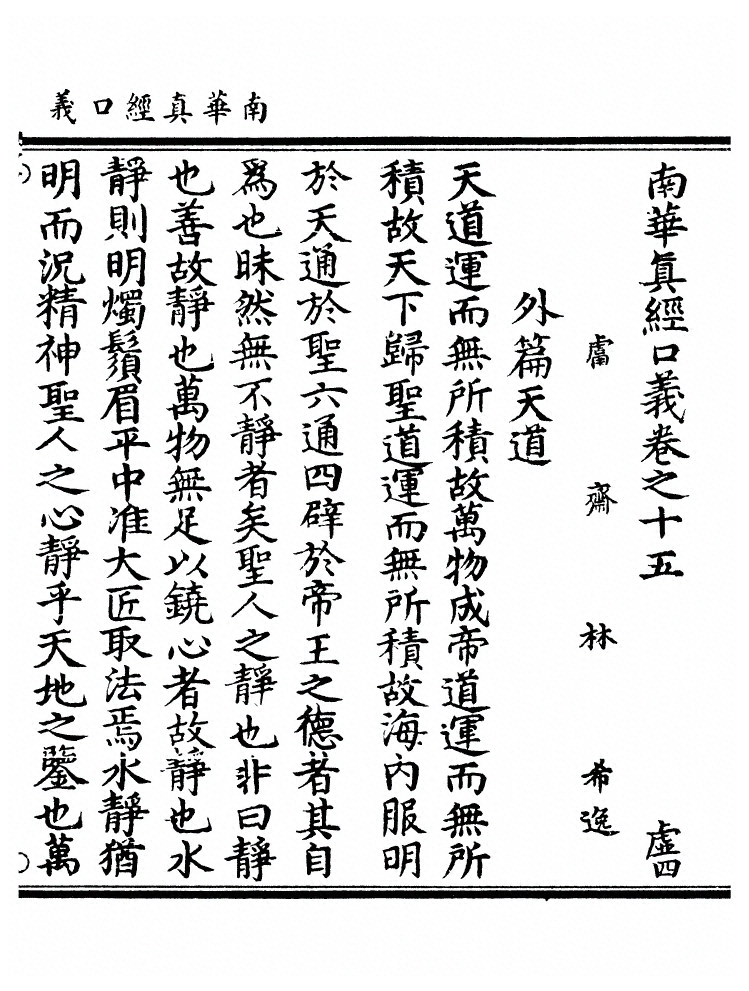 南華真經口義
南華真經口義卷之十五 虛四
鬳齋林希逸
外篇天道
天道運而無所積故萬物成帝道運而無所
積故天下歸聖道運而無所積故海內服明
於天通於聖六通四辟於帝王之德者其自
爲也昧然無不靜者矣聖人之靜也非曰靜
也善故靜也萬物無足以鐃心者故靜也水
靜則明燭鬚眉平中准大匠取法焉水靜猶
明而況精神聖人之心靜乎天地之鑒也萬